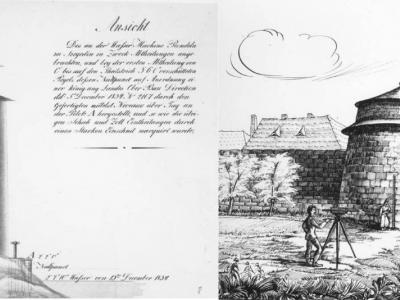 Ansicht
Des an der Wasser Machine Rondelle
zu Szegedin in Zweck Abtheilungen ange
brachten, und bey der ersten Abtheilung von
C bis auf den
Pegel, dessen Nullpunct auf Anordnung ei
ner König ung Landes Ober Bau Direction
ddo 5t December 1834 No 2107 durch den
Gefertigten mittelst Niveaus über Tag an
der Pilote A hergestellt, und so wie die übri
gen Schuh und Zoll Eintheilungen durch
einen starken Einschnitt marquirt wurde.
Nullpunct
Wasser vom 13ten December 1834